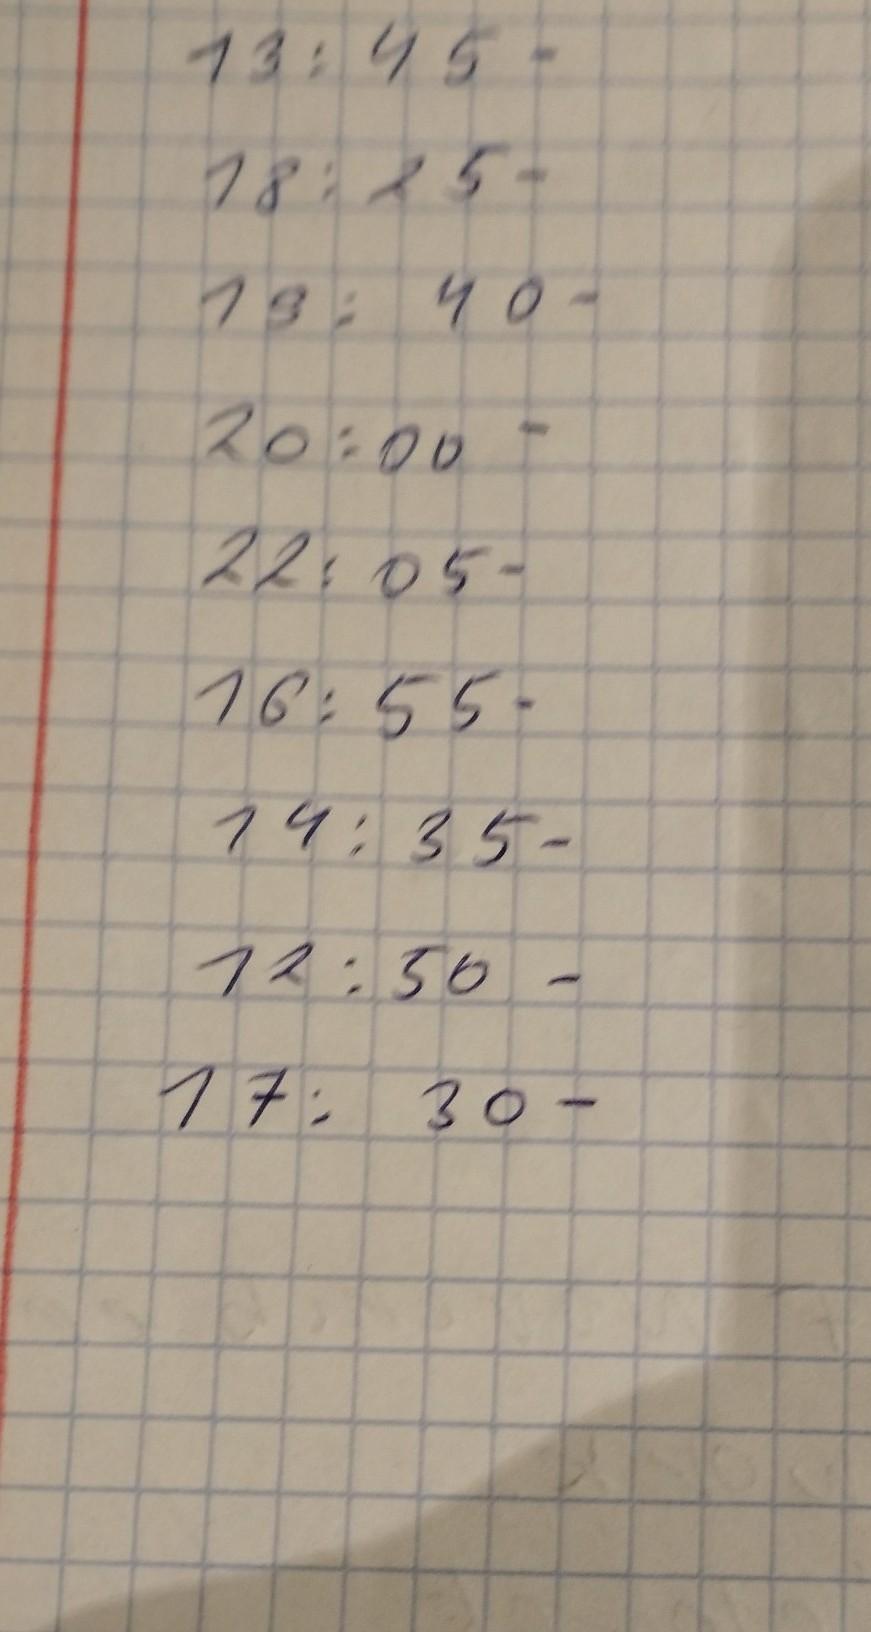 13:45-
18:25-
19:40-
20:00-
22:05-
16:55-
14:35-
12:50-
17:30-